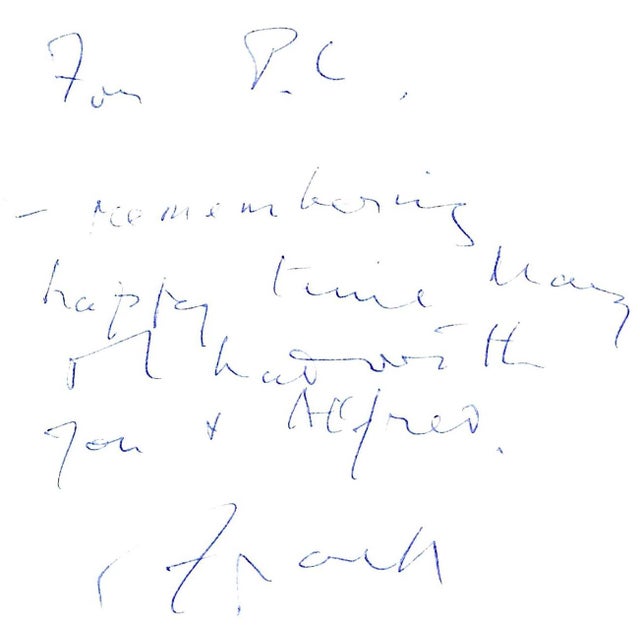 For P.C.
- remembering
happy time Mary
I had with
you & Alfred.
Frank